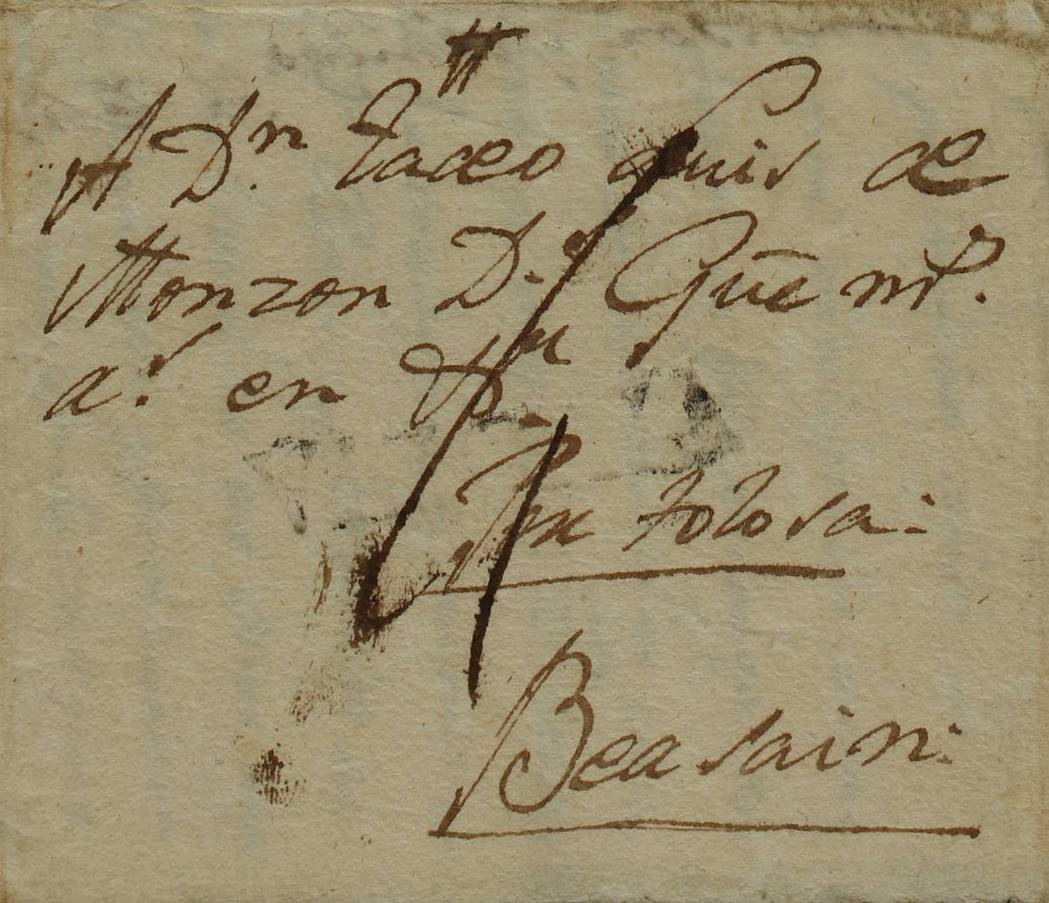 A Dn. Tadeo Luis de
Monzon D. Gūe m.
a.s en
En tolosa:
Beasain: